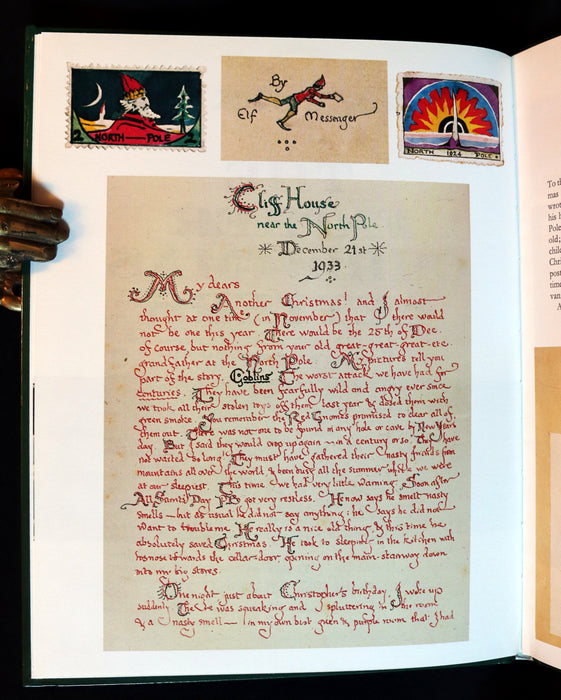 2 NORTH — POLE
By
Elf Messenger
NORTH 1924 POLE
Cliff House
near the North Pole
December 21st
1933
My dears
Another Christmas! and I almost
thought at one time (in November) that there would
not be one this year. There would be the 25th of Dec.
of course, but nothing from your old great-great-great-etc.
grandfather at the North Pole. My pictures tell you
part of the story. Goblins. The worst attack we have had for
centuries. They have been fearfully wild and angry ever since
we took all their stolen toys off them last year & dosed them with
green smoke. You remember the Red Gnomes promised to clear all of
them out. There was not one to be found in any hole or cave by New Years
day. But I said they would crop up again — in a century or so. They have
not waited so long! They must have gathered their nasty friends from
mountains all over the world, & been busy all the summer while we were
at our sleepiest. This time we had very little warning. Soon after
All Saints' Day PB got very restless. He now says he smelt nasty
smells — but as usual he did not say anything: he says he did not
want to trouble me. He really is a nice old thing, & this time he
absolutely saved Christmas. He took to sleeping in the kitchen with
his nose towards the cellar-door, opening on the main-stairway down
into my big stores.
One night just about Christopher's birthday, I woke up
suddenly. There was squeaking and spluttering in the room
& a nasty smell — in my own best green & purple room that I had
To th
mas
wrot
his h
Pole
old;
chil
Chri
post
time
van
A